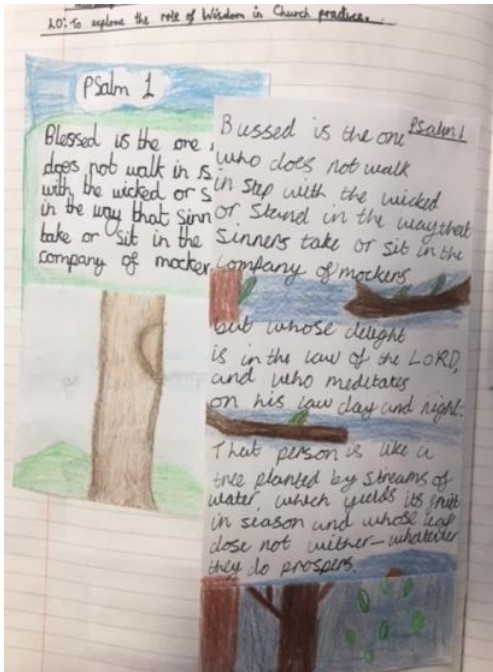 LO: To explore the role of Wisdom in Church practices.
Psalm 1
Blessed is the one
does not walk in s
with the wicked or s
in the way that sinn
take or sit in the
company of mocker
Psalm 1
Blessed is the one
who does not walk
in step with the wicked
or stand in the way that
sinners take or sit in the
company of mockers
but whose delight
is in the law of the LORD,
and who meditates
on his law day and night.
That person is like a
tree planted by streams of
water, which yields its fruit
in season and whose leaf
dose not wither – whatever
they do prospers.